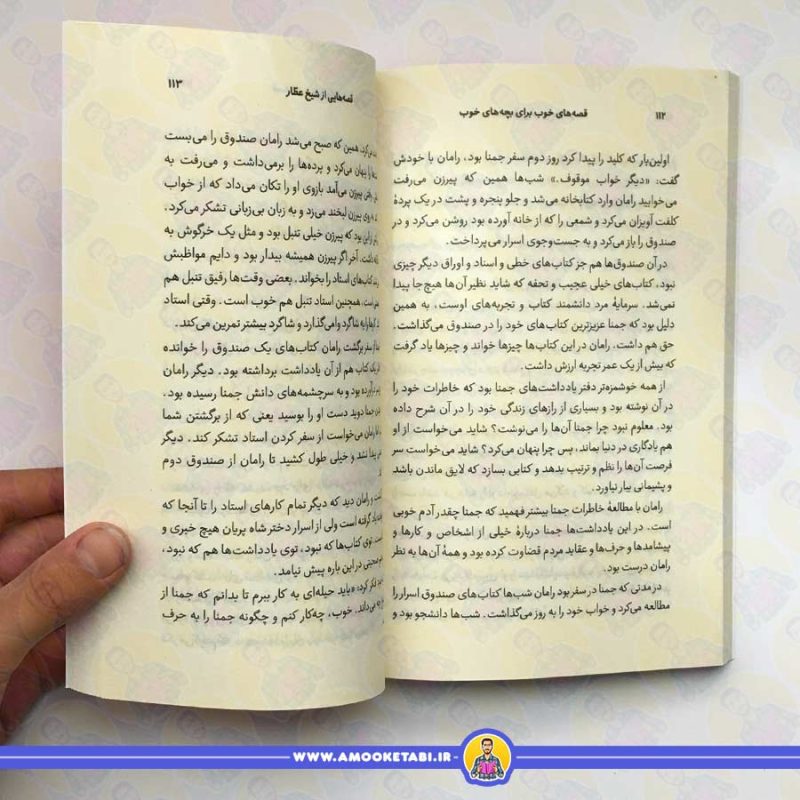 ۱۱۲
قصه‌های خوب برای بچه‌های خوب
اولین‌بار که کلید را پیدا کرد روز دوم سفر جمنا بود، رامان با خودش
گفت: «دیگر خواب موقوف.» شب‌ها همین که پیرزن می‌رفت
می‌خوابید رامان وارد کتابخانه می‌شد و جلو پنجره و پشت در یک پردهٔ
کلفت آویزان می‌کرد و شمعی را که از خانه آورده بود روشن می‌کرد و در
صندوق را باز می‌کرد و به جست‌وجوی اسرار می‌پرداخت.
در آن صندوق‌ها هم جز کتاب‌های خطی و اسناد و اوراق دیگر چیزی
نبود، کتاب‌های خیلی عجیب و تحفه که شاید نظیر آن‌ها هیچ‌جا پیدا
نمی‌شد. سرمایهٔ مرد دانشمند کتاب و تجربه‌های اوست، به همین
دلیل بود که جمنا عزیزترین کتاب‌های خود را در صندوق می‌گذاشت.
حق هم داشت. رامان در این کتاب‌ها چیزها خواند و چیزها یاد گرفت
که بیش از یک عمر تجربه ارزش داشت.
از همه خوشمزه‌تر دفتر یادداشت‌های جمنا بود که خاطرات خود را
در آن نوشته بود و بسیاری از رازهای زندگی خود را در آن شرح داده
بود. معلوم نبود چرا جمنا آن‌ها را می‌نوشت؟ شاید می‌خواست از او
هم یادگاری در دنیا بماند، پس چرا پنهان می‌کرد؟ شاید می‌خواست سر
فرصت آن‌ها را نظم و ترتیب بدهد و کتابی بسازد که لایق ماندن باشد
و پشیمانی ببار نیاورد.
رامان با مطالعهٔ خاطرات جمنا بیشتر فهمید که جمنا چقدر آدم خوبی
است. در این یادداشت‌ها جمنا دربارهٔ خیلی از اشخاص و کارها و
پیشامدها و حرف‌ها و عقاید مردم قضاوت کرده بود و همهٔ آن‌ها به نظر
رامان درست بود.
در مدتی که جمنا در سفر بود رامان شب‌ها کتاب‌های صندوق اسرار را
مطالعه می‌کرد و خواب خود را به روز می‌گذاشت. شب‌ها دانشجو بود و
قصه‌هایی از شیخ عطار
۱۱۳
می‌کرد. همین که صبح می‌شد رامان صندوق را می‌بست
را پنهان می‌کرد و پرده‌ها را برمی‌داشت و می‌رفت به
پیرزن می‌آمد بازوی او را تکان می‌داد که از خواب
روی پیرزن لبخند می‌زد و به زبان بی‌زبانی تشکر می‌کرد.
از این بود که پیرزن خیلی تنبل بود و مثل یک خرگوش به
داشت. آخر اگر پیرزن همیشه بیدار بود و دایم مواظبش
کتاب‌های استاد را بخواند. بعضی وقت‌ها رفیق تنبل هم
است، همچنین استاد تنبل هم خوب است. وقتی استاد
کارها را به شاگرد وامی‌گذارد و شاگرد بیشتر تمرین می‌کند.
از سفر برگشت رامان کتاب‌های یک صندوق را خوانده
یک کتاب هم از آن یادداشت برداشته بود. دیگر رامان
نیاورده بود و به سرچشمه‌های دانش جمنا رسیده بود.
جمنا دوید دست او را بوسید یعنی که از برگشتن شما
رامان می‌خواست از سفر کردن استاد تشکر کند. دیگر
پیدا نشد و خیلی طول کشید تا رامان از صندوق دوم
و رامان دید که دیگر تمام کارهای استاد را تا آنجا که
یاد گرفته است ولی از اسرار دختر شاه پریان هیچ خبری و
توی کتاب‌ها که نبود، توی یادداشت‌ها هم که نبود،
صحبتی در این باره پیش نیامد.
فکر کرد: «باید حیله‌ای به کار ببرم تا بدانم که جمنا از
می‌داند. خوب، چه‌کار کنم و چگونه جمنا را به حرف
WWW.AMOOKETABI.IR